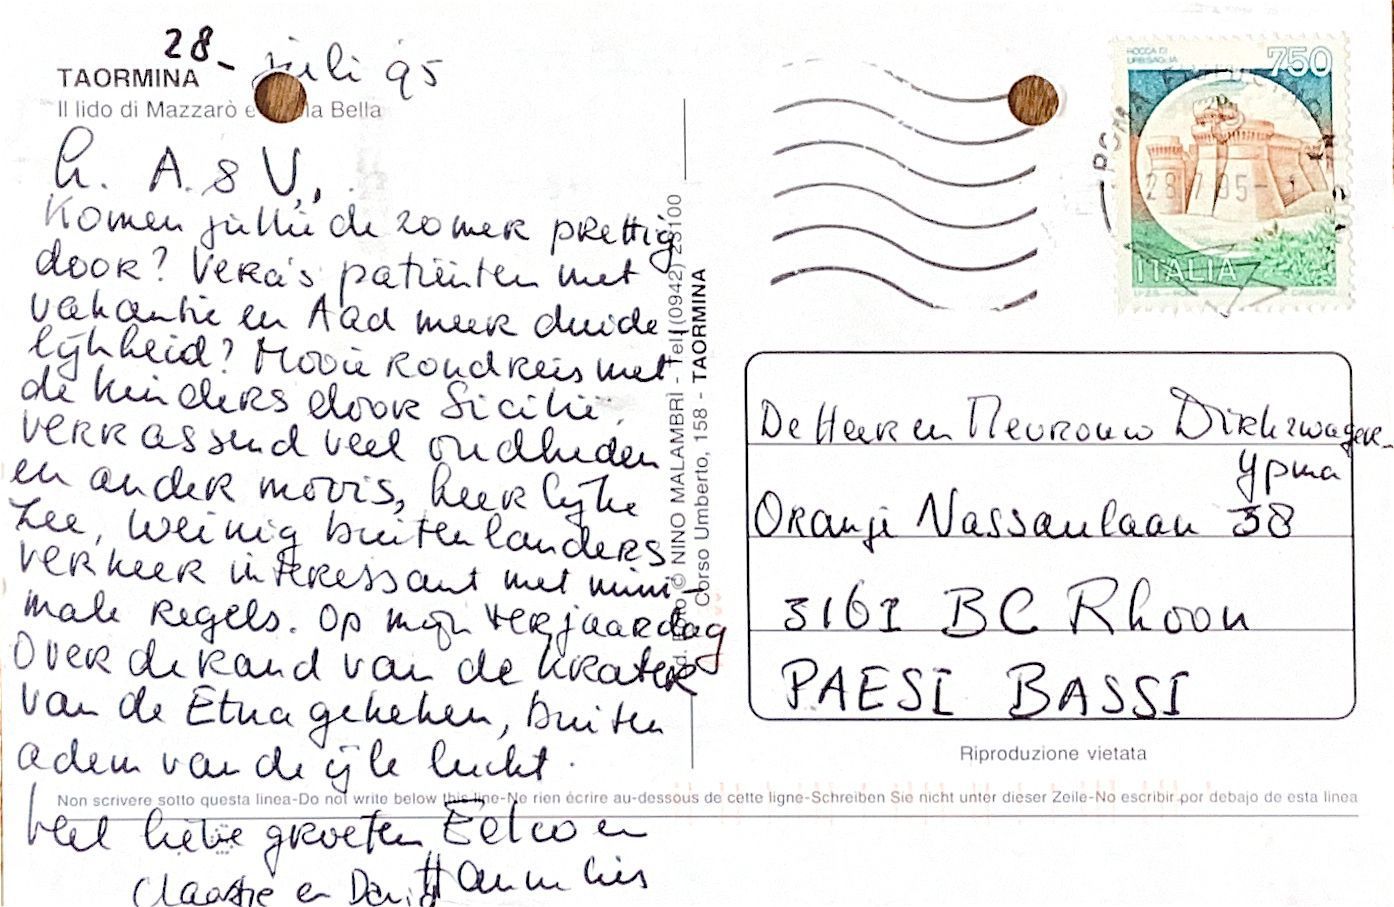 28 - juli 95
TAORMINA
Il lido di Mazzarò e la Bella
L. A. & V,
Komen jullie de zomer prettig
door? Vera's patiënten met
vakantie en Aad meer duide
lijkheid? Mooie rondreis met
de kinders door Sicilië,
verrassend veel oudheden
en ander moois, heerlijke
zee, weinig buitenlanders
verkeer interessant met mini-
male regels. Op mijn verjaardag
over de rand van de krater
van de Etna gekeken, buiten
adem van de ijle lucht.
Veel lieve groeten Eelco en
Hannelies
Claartje en David
Foto © NINO MALAMBRÌ - Tel. (0942) 23100
Corso Umberto, 158 - TAORMINA
ROCCA DI
URBISAGLIA
750
ITALIA
ROMA
28 7 95
De Heer en Mevrouw Dirkzwager-
Ypma
Oranje Nassaulaan 38
3161 BC Rhoon
PAESI BASSI
Riproduzione vietata
Non scrivere sotto questa linea-Do not write below this line-Ne rien écrire au-dessous de cette ligne-Schreiben Sie nicht unter dieser Zeile-No escribir por debajo de esta linea